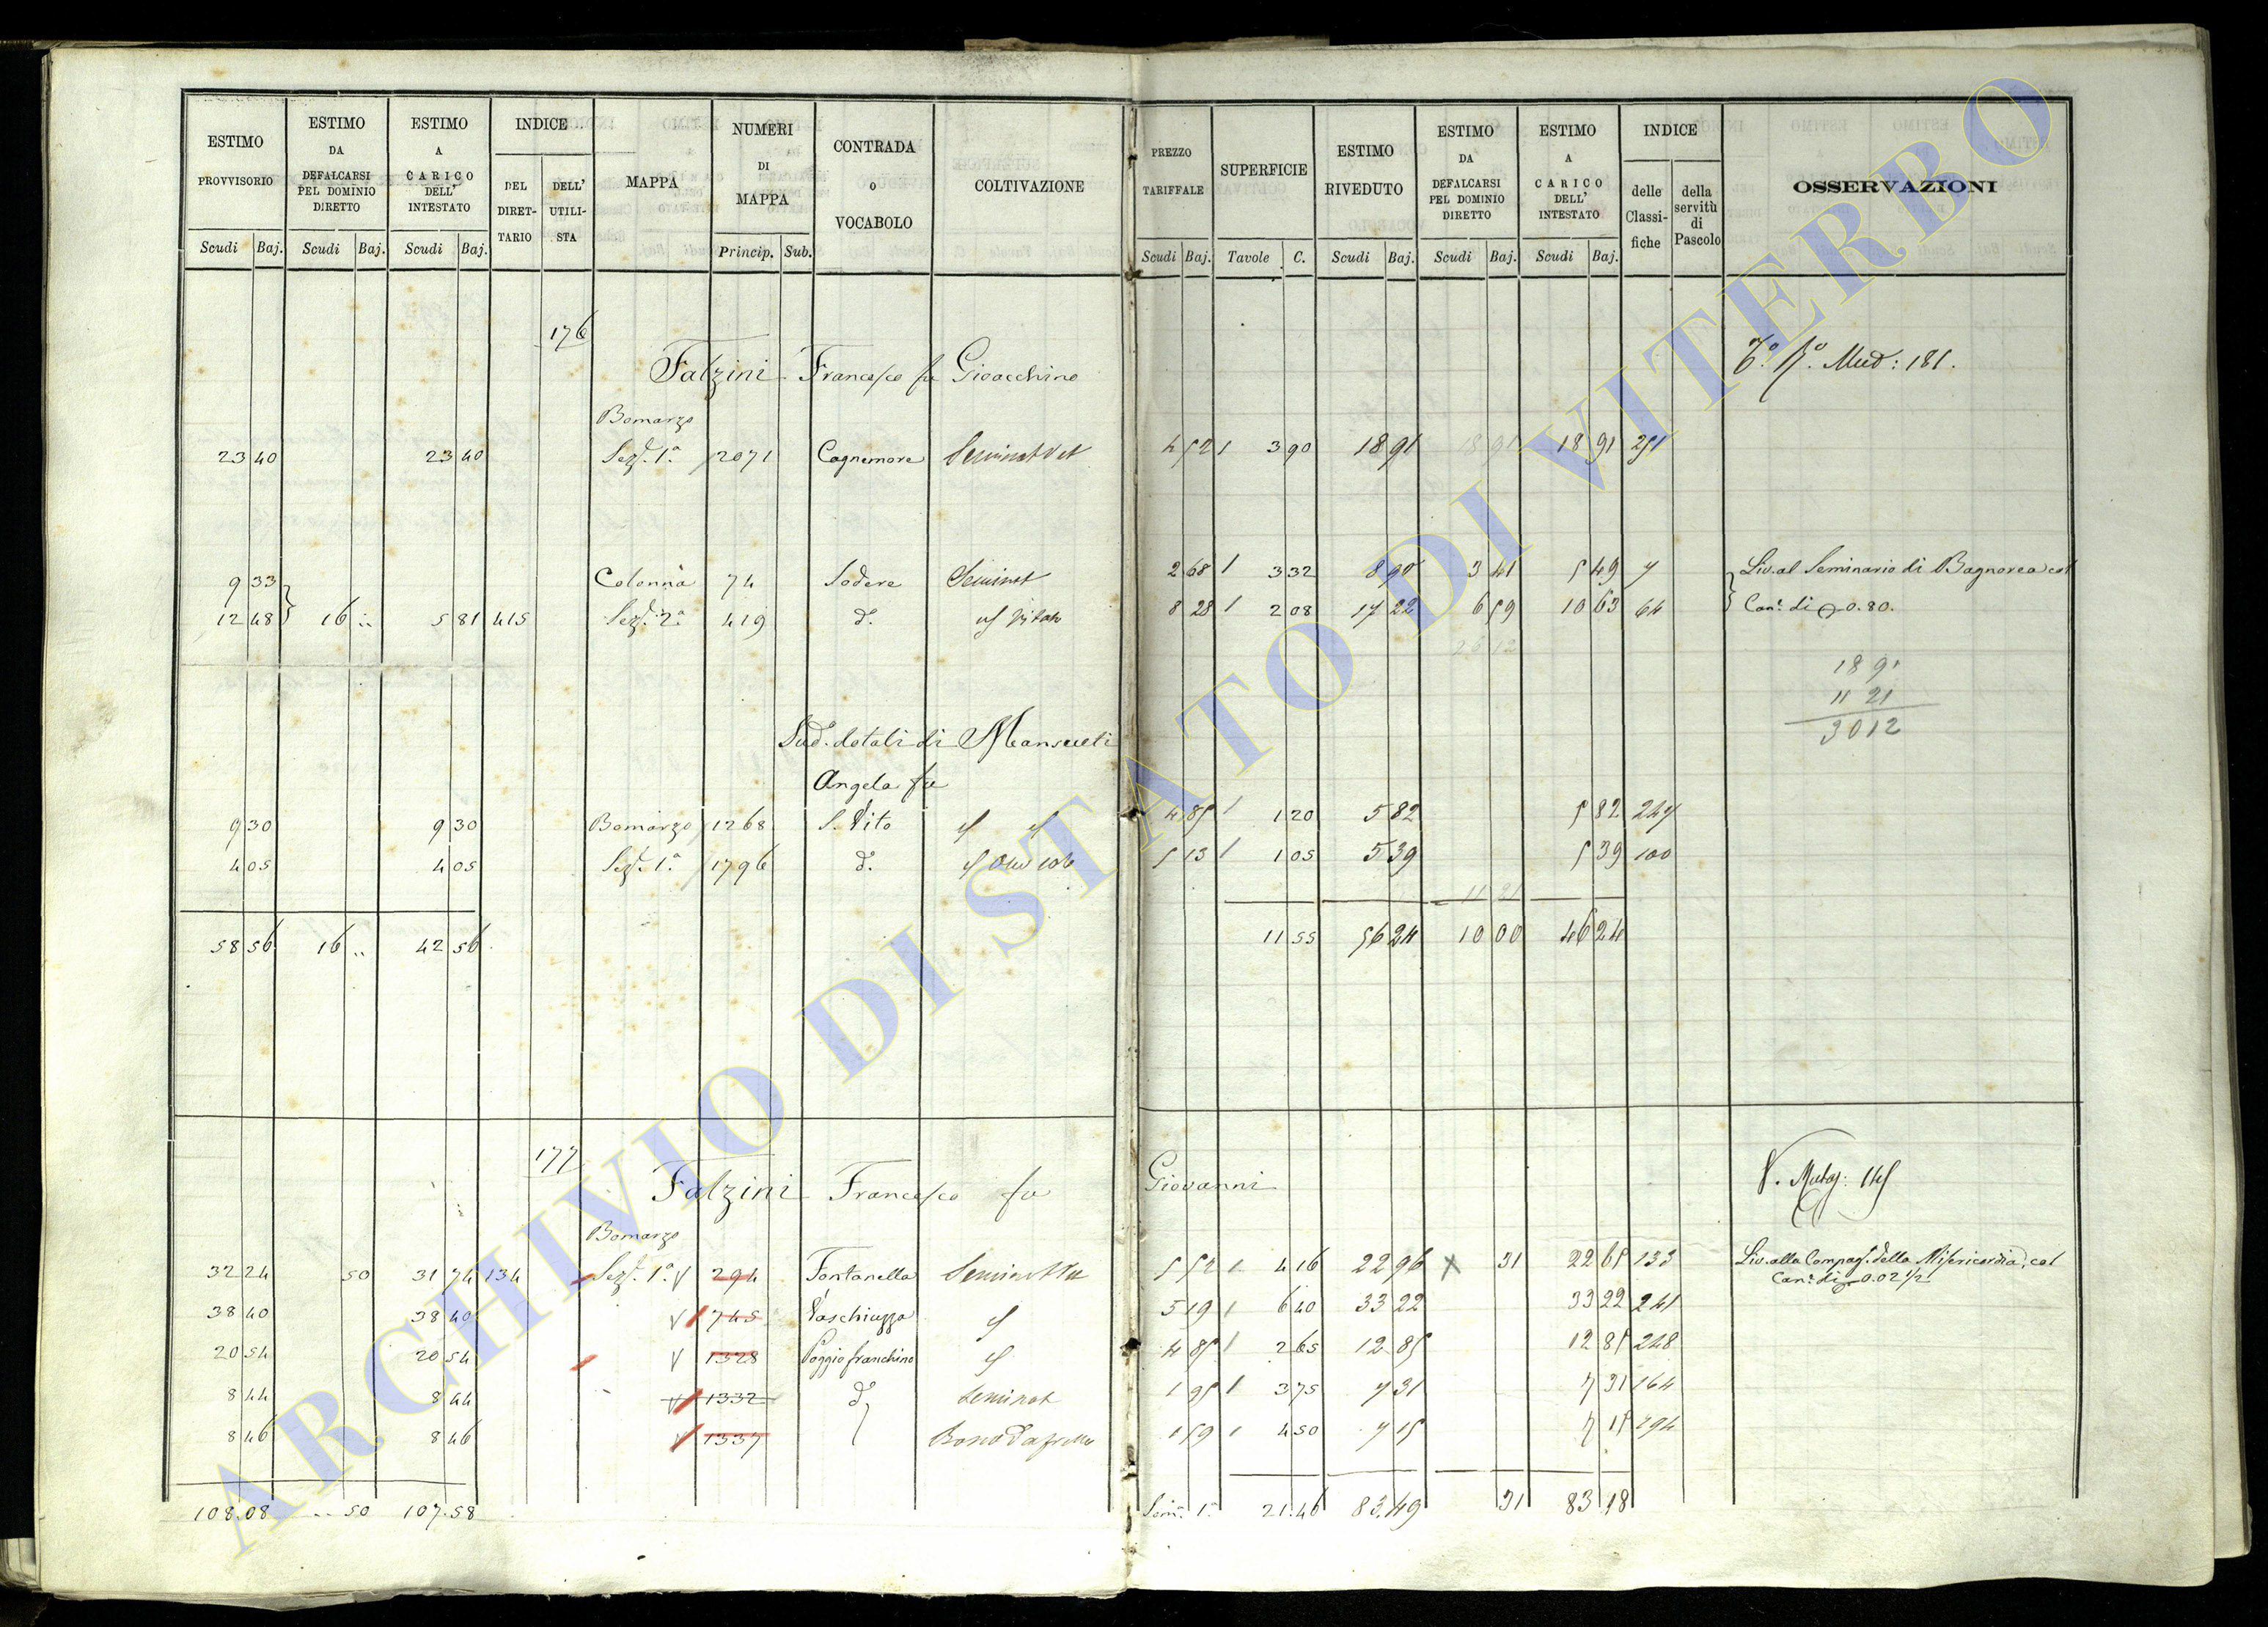 ESTIMO PROVVISORIO | ESTIMO DA DEFALCARSI PEL DOMINIO DIRETTO | ESTIMO A CARICO DELL' INTESTATO | INDICE | MAPPA | NUMERI DI MAPPA | CONTRADA O VOCABOLO | COLTIVAZIONE | PREZZO TARIFFALE | SUPERFICIE | ESTIMO RIVEDUTO | ESTIMO DA DEFALCARSI PEL DOMINIO DIRETTO | ESTIMO A CARICO DELL' INTESTATO | INDICE | OSSERVAZIONI
DEL DIRETTARIO | DELL' UTILISTA | delle Classifiche | della servitù di Pascolo
Scudi Baj. | Scudi Baj. | Scudi Baj. | Princip. Sub. | Scudi Baj. | Tavole C. | Scudi Baj. | Scudi Baj. | Scudi Baj.
176
Falzini Francesco fu Gioacchino
181.
Bomarzo
23 40 | 23 40 | Sez. 1ª | 2071 | Cagnemore | Seminat Vit | 4 52 | 3 90 | 18 91 | 18 91 | 18 91 | 251
9 33 | Colonna | 74 | Sodere | Seminat | 2 68 | 3 32 | 8 90 | 3 41 | 5 49 | 7 | Liv. al Seminario di Bagnorea col
12 48 | 16 .. | 5 81 | 415 | Sez. 2ª | 419 | d.º | 8 28 | 2 08 | 17 22 | 6 59 | 10 63 | 64 | Can.e di 0.80.
26 12
18 91
11 21
30 12
Sud. dotali di Mansueti
Angela fu
9 30 | 9 30 | Bomarzo | 1268 | S. Vito | 4 85 | 1 20 | 5 82 | 5 82 | 247
4 05 | 4 05 | Sez. 1ª | 1796 | d.º | 5 13 | 1 05 | 5 39 | 5 39 | 100
11 21
58 56 | 16 .. | 42 56 | 11 55 | 56 24 | 10 00 | 46 24
177
Falzini Francesco fu Giovanni
V. Mutaz: 145
Bomarzo
32 24 | 50 | 31 74 | 134 | Sez. 1ª | 294 | Fontanella | 5 52 | 4 16 | 22 96 | 31 | 22 65 | 133 | Liv. alla Compag. della Misericordia, col
Can.e di 0.02 1/2
38 40 | 38 40 | 745 | Vaschiuzza | 5 19 | 6 40 | 33 22 | 33 22 | 241
20 54 | 20 54 | 1328 | Poggio franchino | 4 85 | 2 65 | 12 85 | 12 85 | 248
8 44 | 8 44 | 1332 | d.º | Seminat | 1 95 | 3 75 | 7 31 | 7 31 | 164
8 46 | 8 46 | 1337 | 1 59 | 4 50 | 7 15 | 7 15 | 294
108.08 | .. 50 | 107.58 | 21.46 | 83.49 | 31 | 83.18
ARCHIVIO DI STATO DI VITERBO